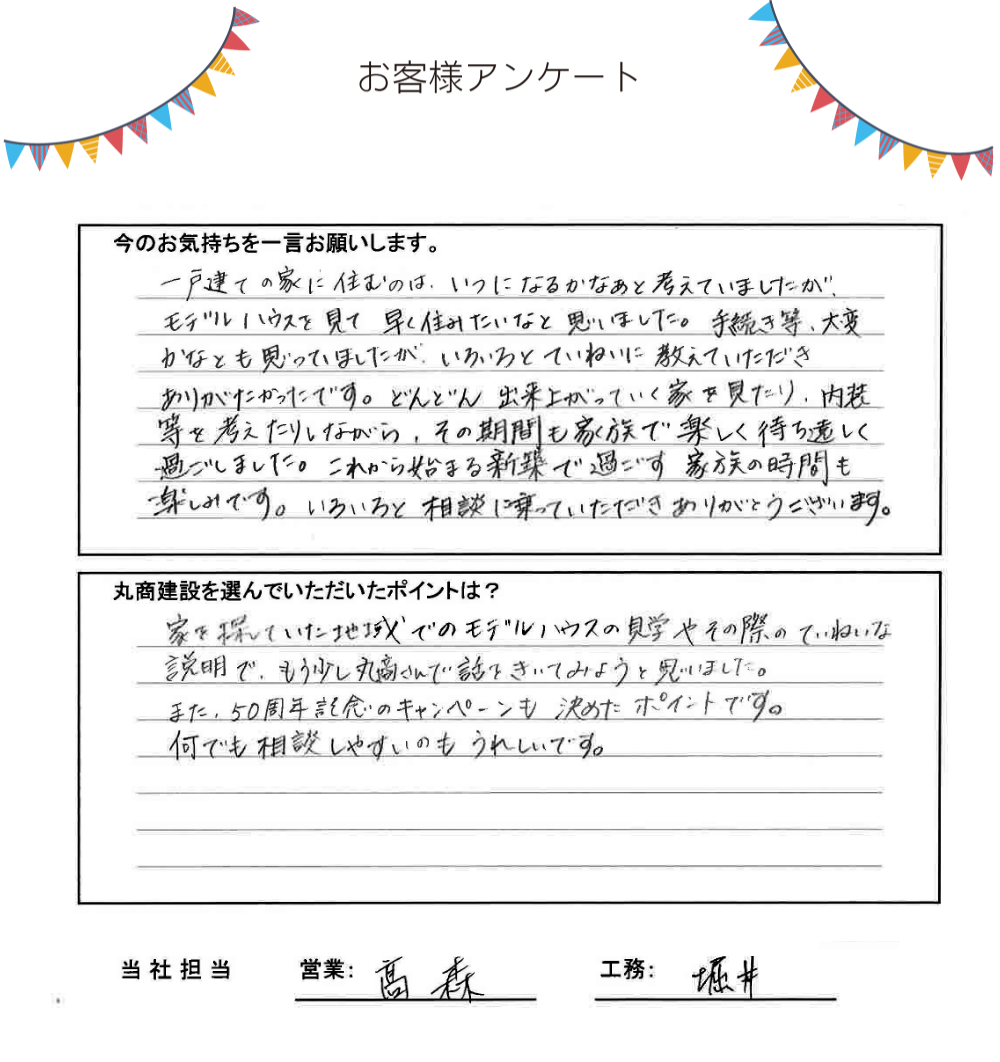 お客様アンケート
今のお気持ちを一言お願いします。
一戸建ての家に住むのは、いつになるかなあと考えていましたが、
モデルハウスを見て 早く住みたいなと思いました。手続き等、大変
かなとも思っていましたが、いろいろとていねいに教えていただき
ありがたかったです。どんどん 出来上がっていく家を見たり、内装
等を考えたりしながら、その期間も家族で楽しく待ち遠しく
過ごしました。これから始まる新築で過ごす 家族の時間も
楽しみです。いろいろと相談に乗っていただきありがとうございます。
丸商建設を選んでいただいたポイントは？
家を探していた地域でのモデルハウスの見学やその際のていねいな
説明で、もう少し丸商さんで話をきいてみようと思いました。
また、50周年記念のキャンペーンも 決めた ポイントです。
何でも相談しやすいのもうれしいです。
当社担当 営業: 髙森 工務: 堀井